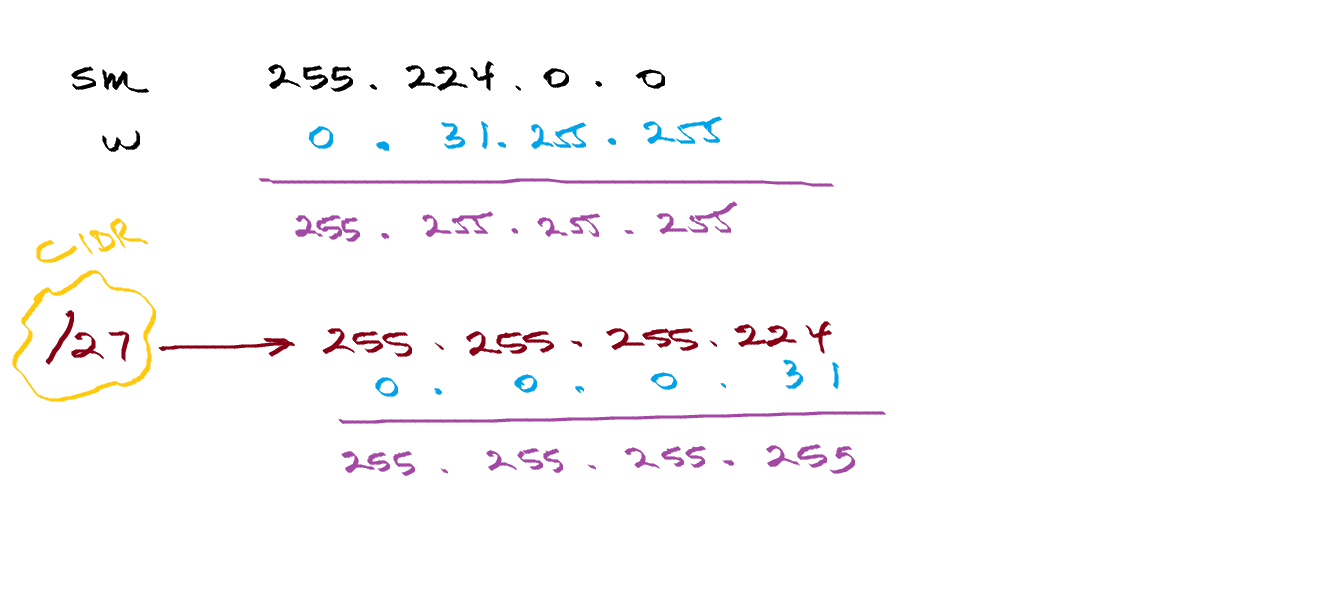 sm 255.224.0.0
w 0.31.255.255
255.255.255.255
CIDR
/27 → 255.255.255.224
0.0.0.31
255.255.255.255